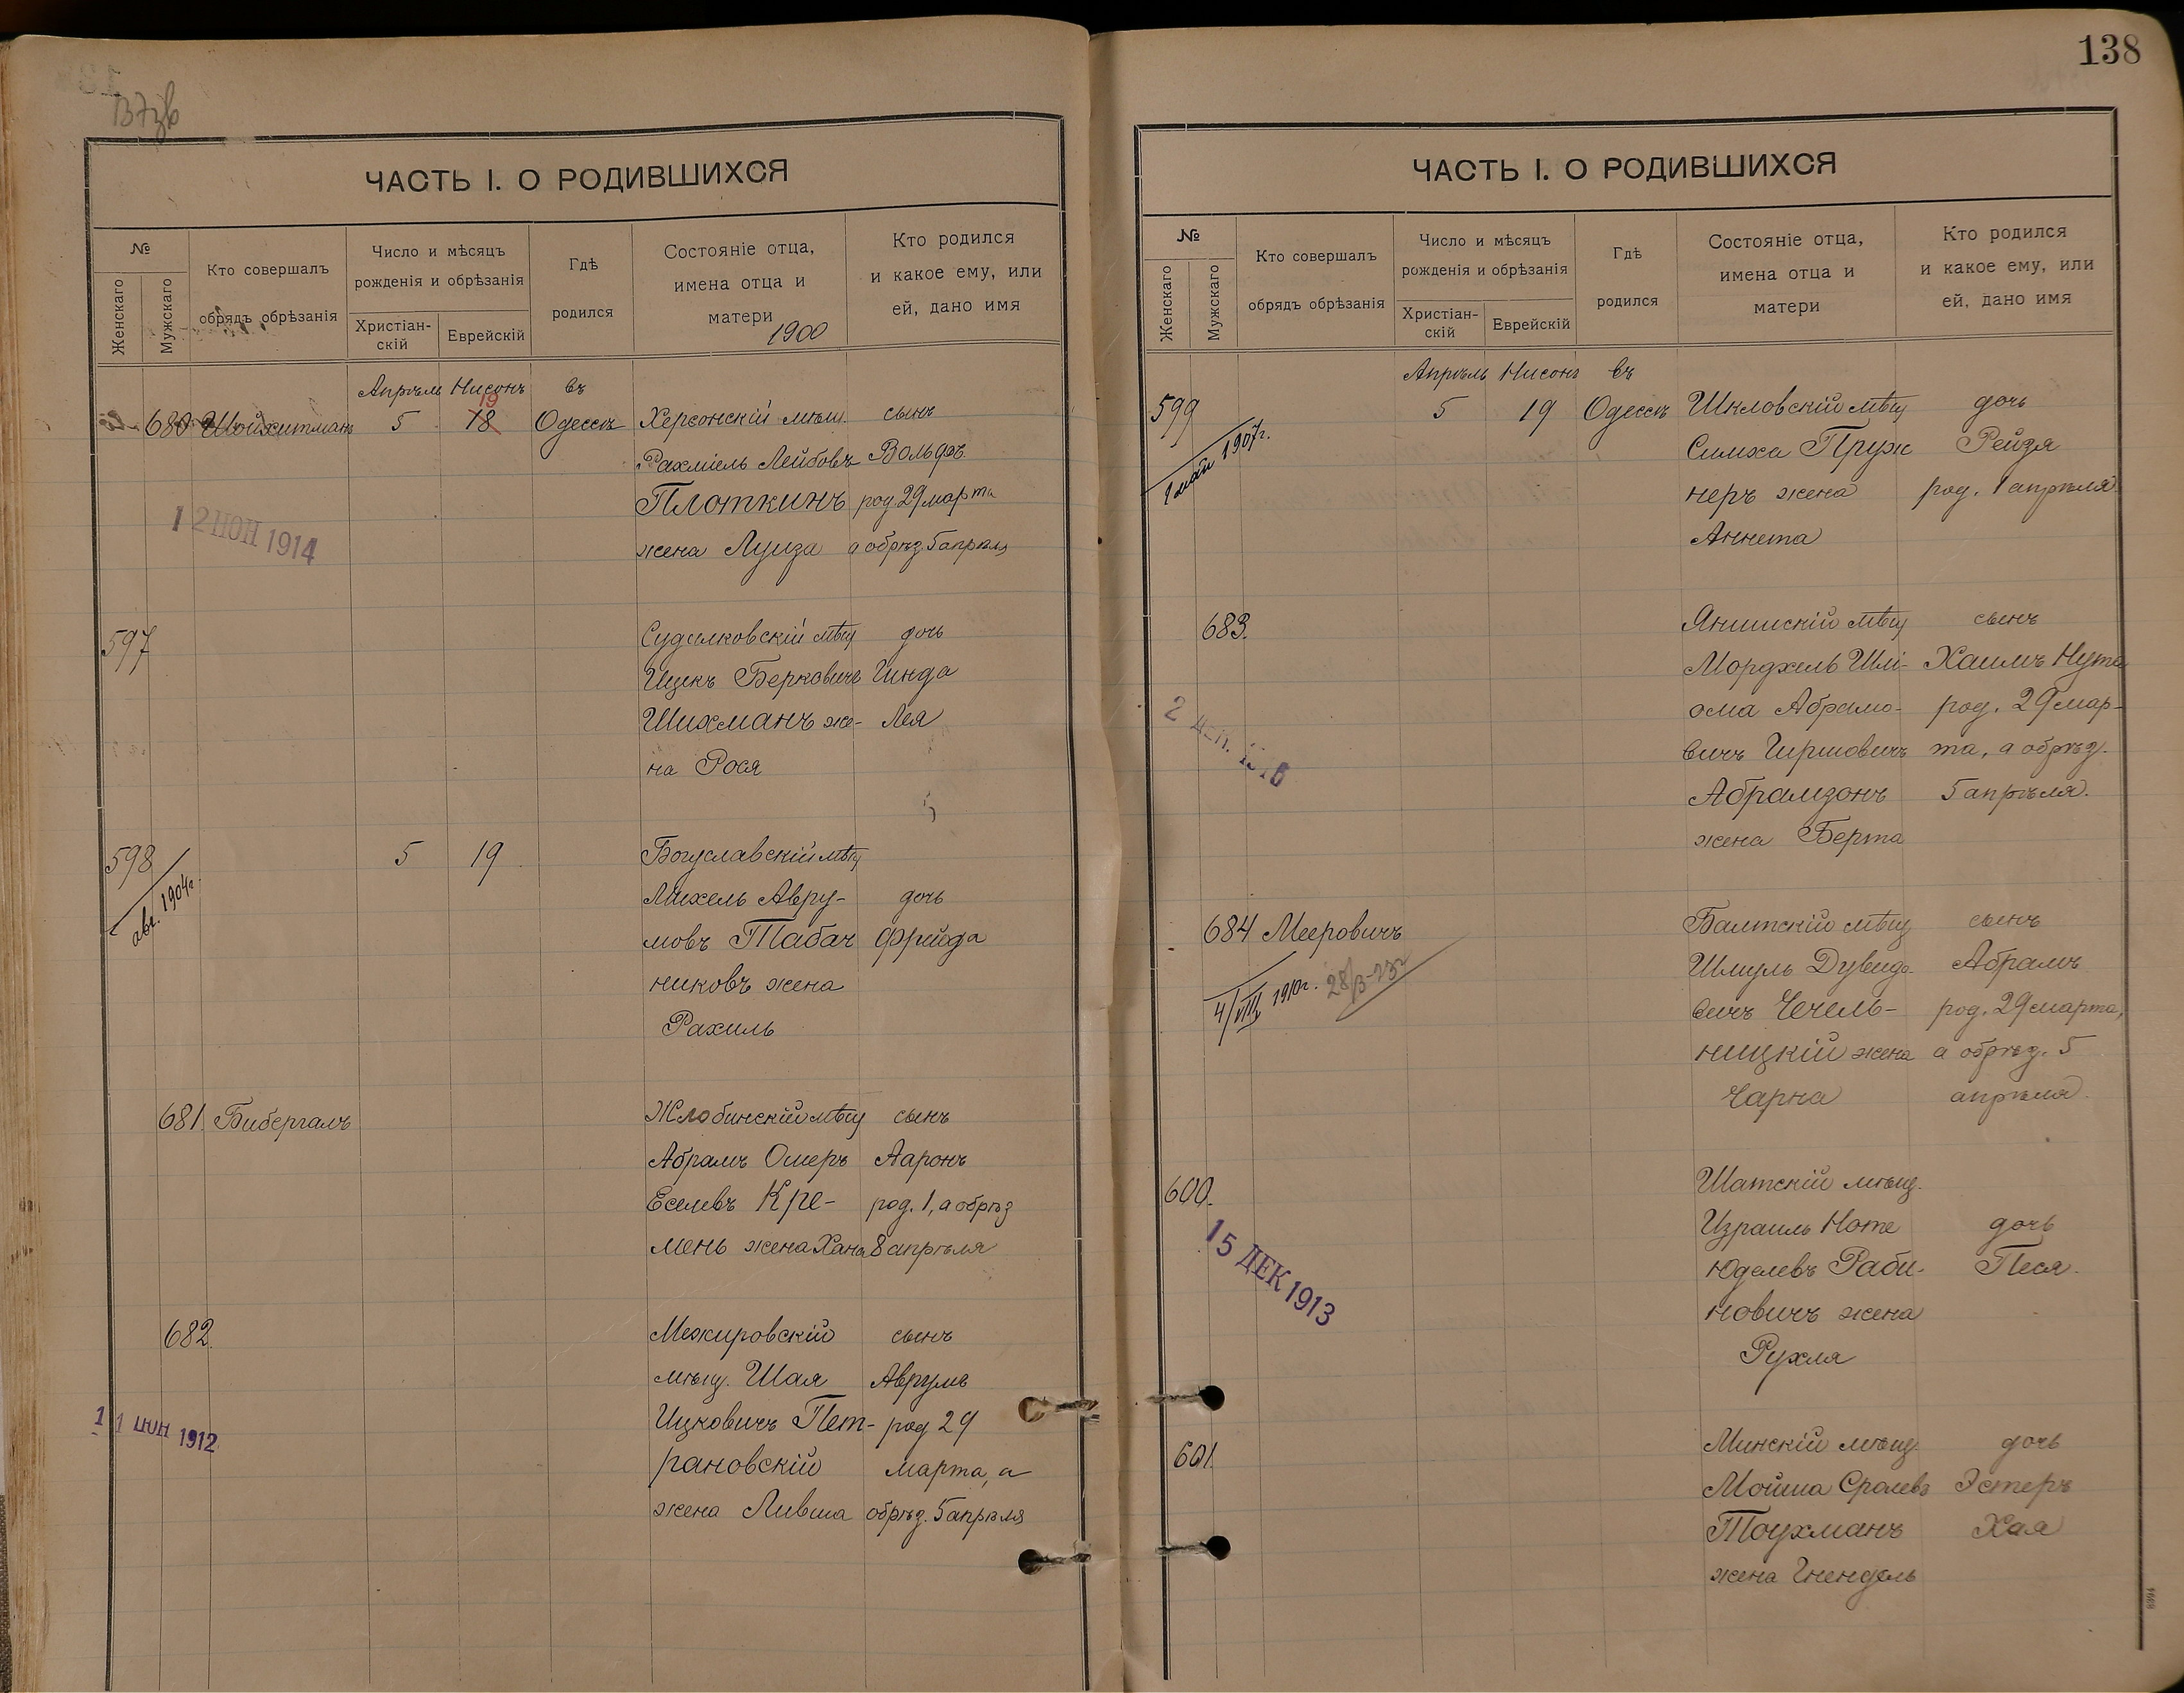 137зв
ЧАСТЬ I. О РОДИВШИХСЯ
№
Женскаго
Мужскаго
Кто совершалъ
обрядъ обрѣзанія
Число и мѣсяцъ
рожденія и обрѣзанія
Христіан-
скій
Еврейскій
Гдѣ
родился
Состояніе отца,
имена отца и
матери
1900
Кто родился
и какое ему, или
ей, дано имя
Апрѣль Нисонъ въ
19
680 Шойхитманъ 5 18 Одессѣ Херсонскій мѣщ. сынъ
Рахміель Лейбовъ Вольфъ
Плоткинъ род 29 марта
жена Луиза а обрѣз. 5 апрѣля
12 ІЮН 1914
597
Судилковскій мѣщ дочь
Ицекъ Берковичъ Гинда
Шихманъ же- Лея
на Рося
598 5 19 Богуславскій мѣщ
авг. 1904г.
Михель Авру- дочь
мовъ Табач Фрейда
никовъ жена
Рахиль
681. Бибергалъ Жлобинскій мѣщ сынъ
Абрамъ Ошеръ Ааронъ
Еселевъ Кре- род. 1, а обрѣз
мень жена Хана 8 апрѣля
682. Межировскій сынъ
мѣщ. Шая Аврумъ
Ицковичъ Пет- род 29
рановскій марта, а
жена Ливша обрѣз. 5 апрѣля
11 ІЮН 1912
138
ЧАСТЬ I. О РОДИВШИХСЯ
№
Женскаго
Мужскаго
Кто совершалъ
обрядъ обрѣзанія
Число и мѣсяцъ
рожденія и обрѣзанія
Христіан-
скій
Еврейскій
Гдѣ
родился
Состояніе отца,
имена отца и
матери
Кто родился
и какое ему, или
ей, дано имя
Апрѣль Нисонъ въ
599 5 19 Одессѣ Шкловскій мѣщ дочь
1 май 1907г.
Симха Пруж Рейзя
неръ жена род. 1 апрѣля
Аннета
683. Янишскій мѣщ сынъ
Мордхель Шлі- Хаимъ Нута
ома Абрамо- род. 29 мар-
вичъ Гиршовичъ та, а обрѣз.
Абрамзонъ 5 апрѣля.
жена Берта
684 Мееровичъ Балтскій мѣщ сынъ
4/VIII 1910г. 28/3-23г
Шмуль Дувидо- Абрамъ
вичъ Чечель- род. 29 марта,
ницкій жена а обрѣз. 5
Чарна апрѣля.
600. Шатскій мѣщ.
15 ДЕК 1913
Израиль Ноте дочь
Юделевъ Раби- Песя.
новичъ жена
Рухля
601. Минскій мѣщ. дочь
Мойша Сролевъ Эстеръ
Тоухманъ Хая
жена Гнендель